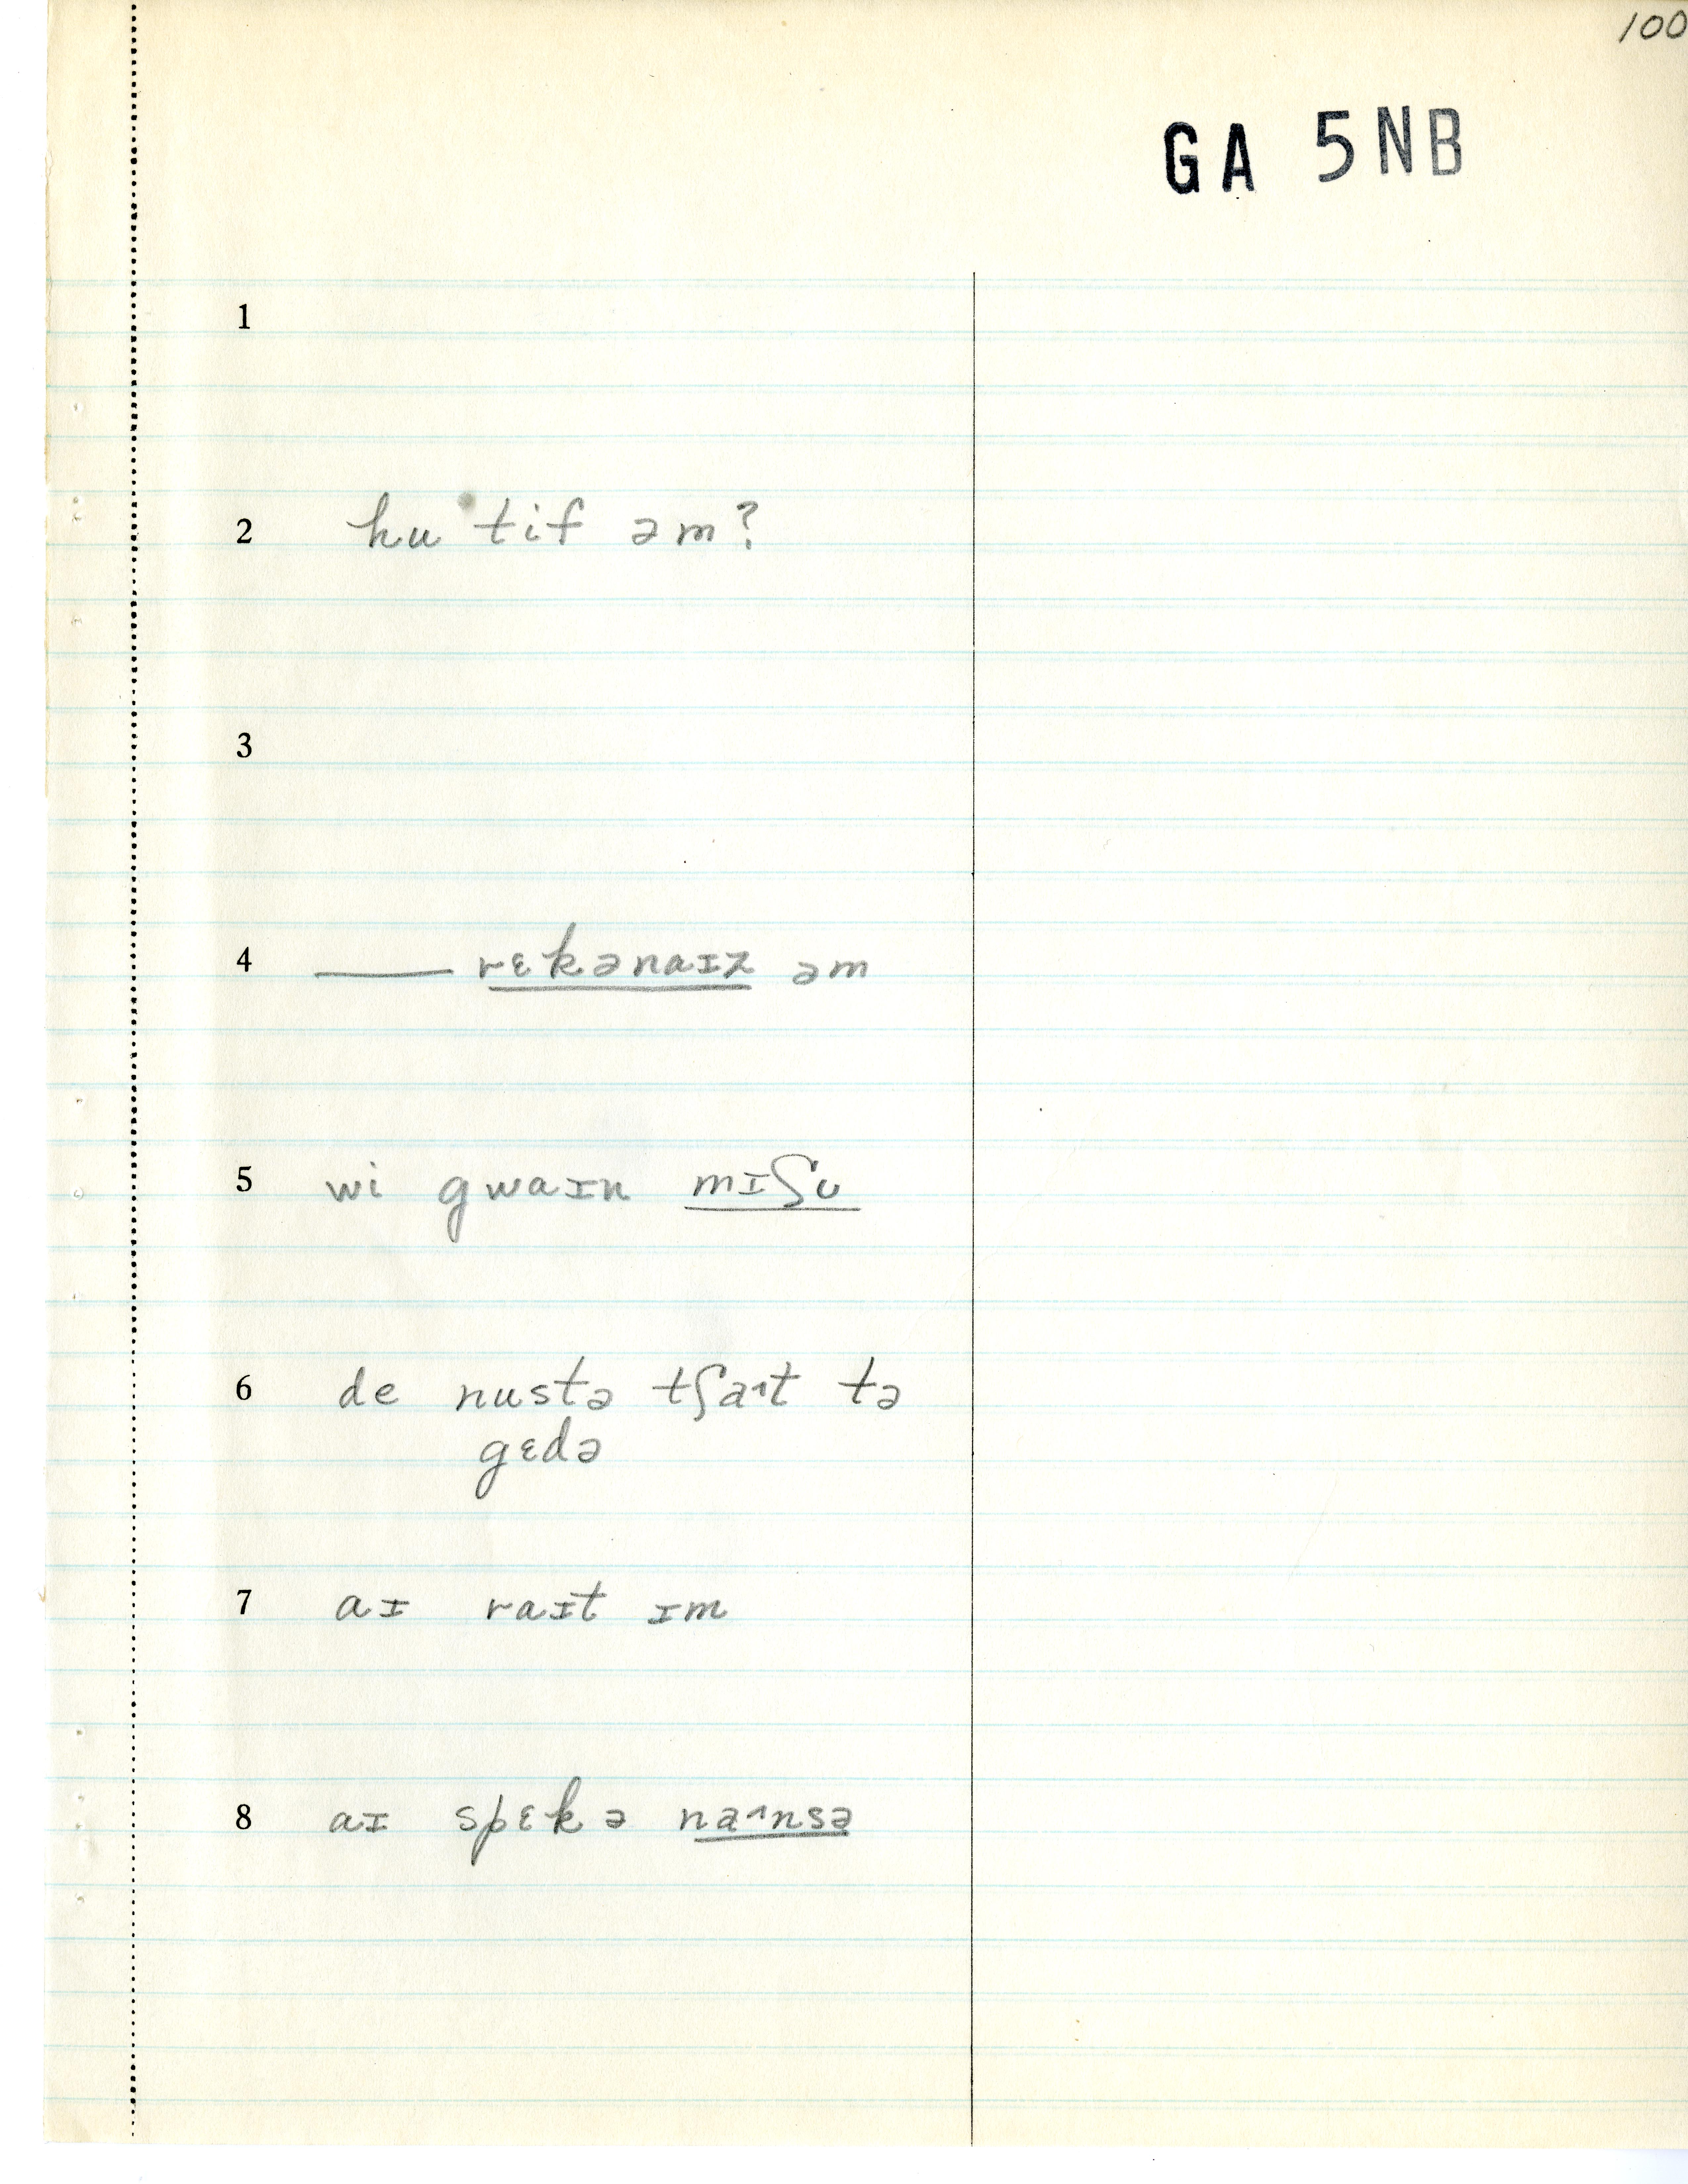 100
GA 5NB
1
2 hu tif əm?
3
4 —— rɛkənaɪz əm
5 wi gwaɪn mɪʃʊ
6 de nustə tʃaɪt tə
gɛdə
7 aɪ raɪt ɪm
8 aɪ spɛk ə naɪnsə